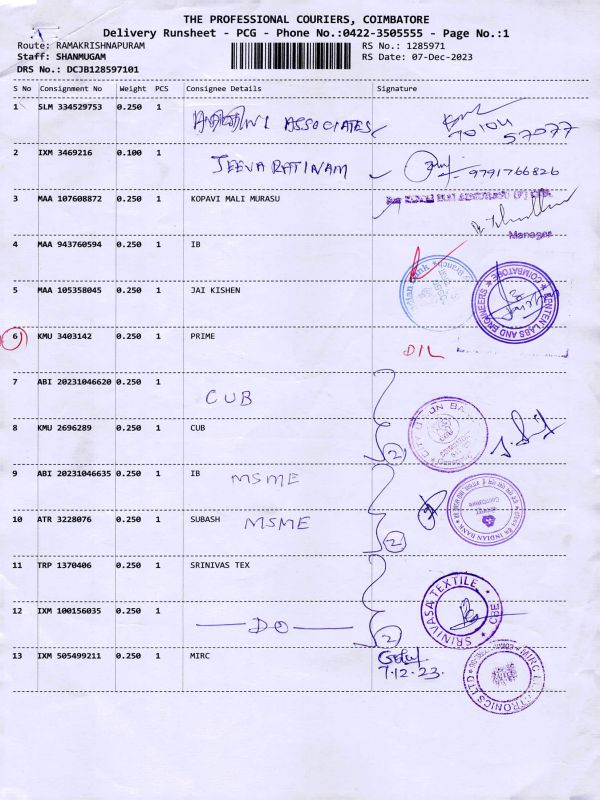 THE PROFESSIONAL COURIERS, COIMBATORE
Delivery Runsheet - PCG - Phone No.:0422-3505555 - Page No.:1
Route: RAMAKRISHNAPURAM RS No.: 1285971
Staff: SHANMUGAM RS Date: 07-Dec-2023
DRS No.: DCJB128597101
S No Consignment No Weight PCS Consignee Details Signature
1 SLM 334529753 0.250 1 ASSOCIATES
70104
57077
2 IXM 3469216 0.100 1 JEEVA RATINAM 9791766826
3 MAA 107608872 0.250 1 KOPAVI MALI MURASU
Manager
4 MAA 943760594 0.250 1 IB
5 MAA 105358045 0.250 1 JAI KISHEN
CENTEN LABS AND ENGINEERS COIMBATORE
6 KMU 3403142 0.250 1 PRIME DIL
7 ABI 20231046620 0.250 1 CUB
8 KMU 2696289 0.250 1 CUB 2
9 ABI 20231046635 0.250 1 IB MSME
INDIAN BANK
10 ATR 3228076 0.250 1 SUBASH MSME 2
11 TRP 1370406 0.250 1 SRINIVAS TEX
SRINIVASA TEXTILE CBE
12 IXM 100156035 0.250 1 — DO — 2
13 IXM 505499211 0.250 1 MIRC
7.12.23.
MIRC ELECTRONICS LTD